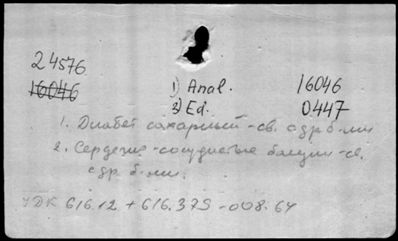 24576
16046
1) Anal. 16046
2) Ed. 0447
1. Диабет сахарный - св. с др б-ми
2. Сердечно-сосудистые болезни - св.
с др. б-ми.
УДК 616.12 + 616.379-008.64